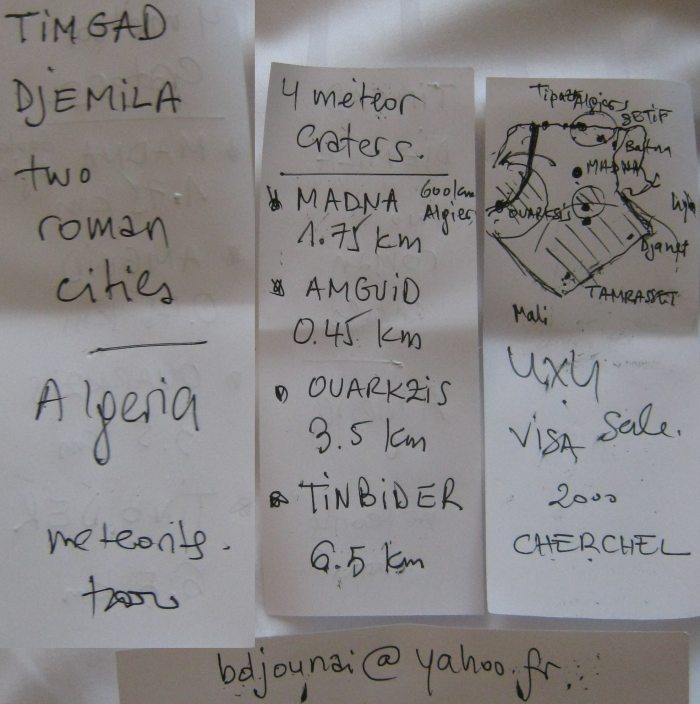 TIMGAD
DJEMILA
two
roman
cities
Algeria
meteorits.
4 meteor
craters.
MADNA 600km
Algiers
1.75 km
AMGUID
0.45 km
OUARKZIS
3.5 km
TINBIDER
6.5 km
Tipaza Algiers
SETIF
Batna
MADNA
OUARKSIS
Djanet
TAMRASSET
Mali
4x4
VISA Sale.
2000
CHERCHEL
bdjounai@yahoo.fr